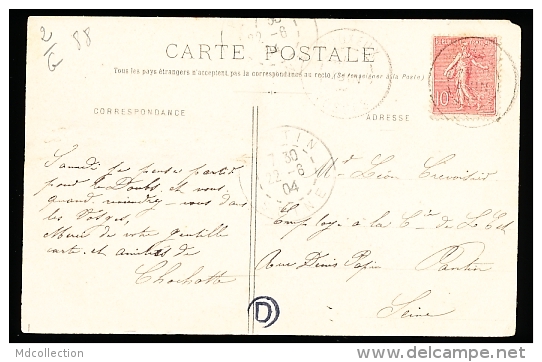 2/G 88
CARTE POSTALE
Tous les pays étrangers n'acceptent pas la correspondance au recto. (Se renseigner à la Poste)
CORRESPONDANCE
ADRESSE
10
TIN
7 30
22-6
04
Samedi je pense partir
pour le Doubs, et vous
quand viendrez-vous dans
les Vôtres,
Merci de votre gentille
carte, et amitiés de
Chochotte
Mr Léon
Employé à la Cie de l'Est
Rue Denis Papin Pantin
Seine
D
Mdcollection
delcampe.net